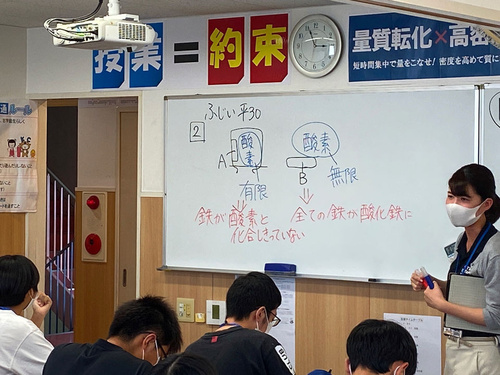 授業＝約束
量質転化×高密
短時間集中で量をこなせ! 密度を高めて質に
ふじい平30
2
酸素
酸素
A
B
有限
無限
鉄が酸素と
化合しきっていない
全ての鉄が酸化鉄に